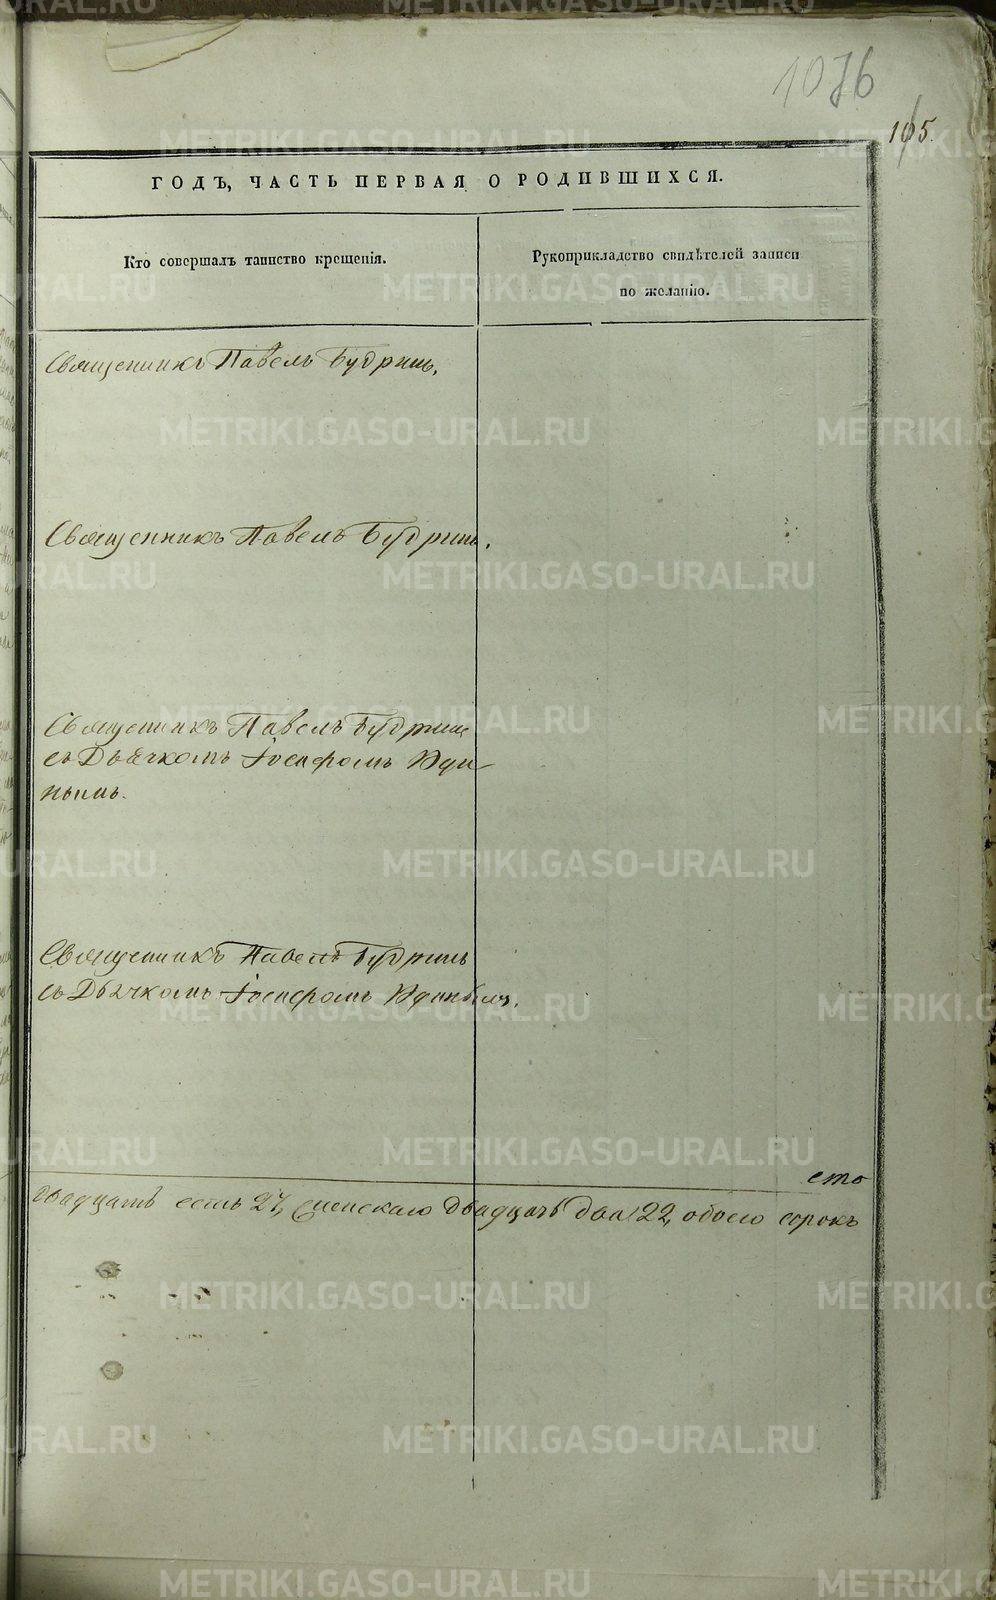 1076
105.
ГОДЪ, ЧАСТЬ ПЕРВАЯ О РОДИВШИХСЯ.
Кто совершалъ таинство крещенія.
Рукоприкладство свидѣтелей записи
по желанію.
Священникъ Павелъ Будринъ.
Священникъ Павелъ Будринъ.
Священникъ Павелъ Будринъ
съ Дьячкомъ
Священникъ Павелъ Будринъ
съ Дьячкомъ
двадцать 27, Женскаго двадцать два 22, обоего сорокъ
METRIKI.GASO-URAL.RU